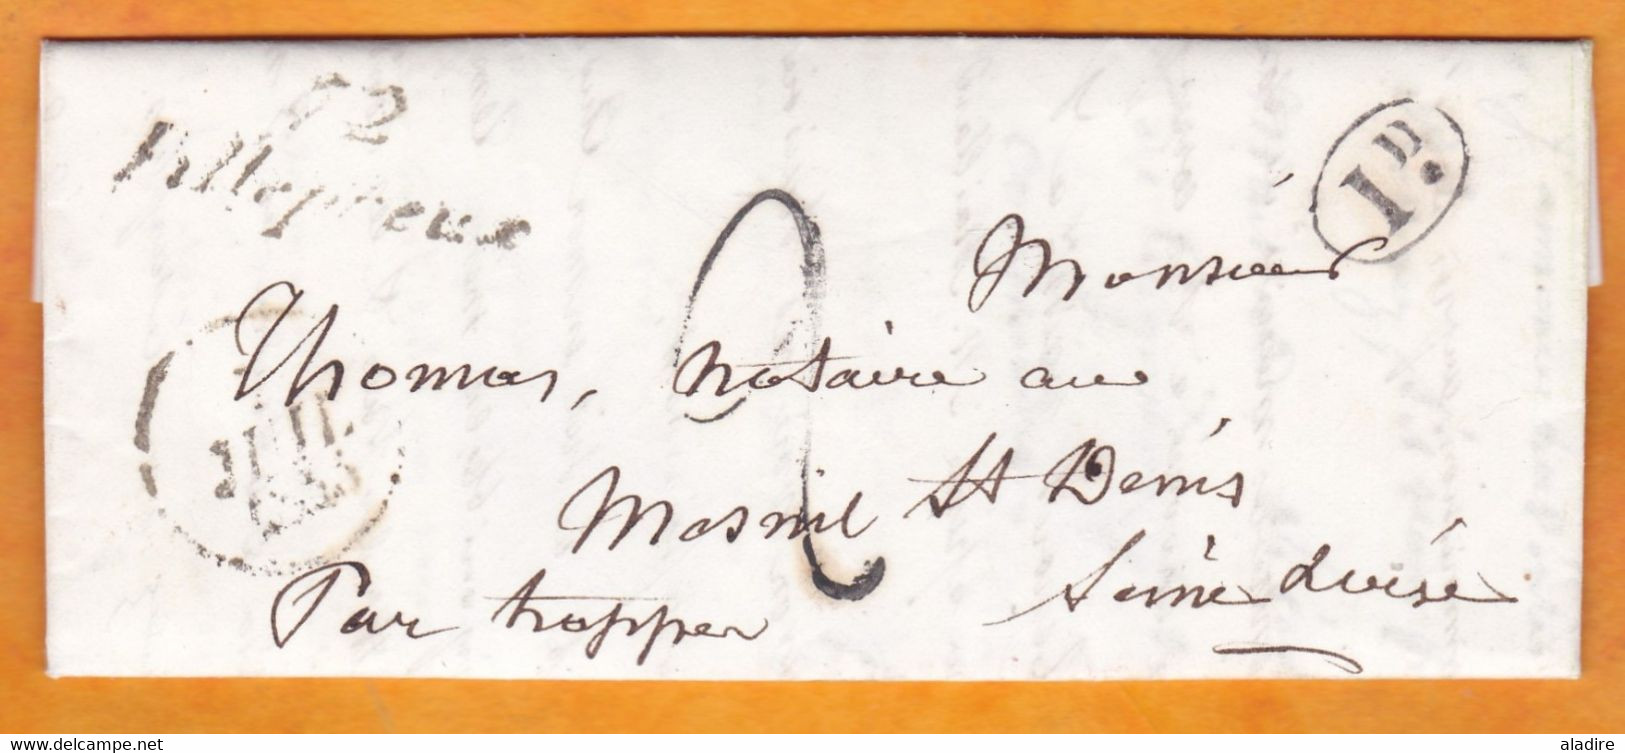 72
Villepreux
1D.
2
Monsieur
Thomas, notaire au
JUIL
Mesnil St Denis
Seine & oise
Par trapper
delcampe.net
aladire